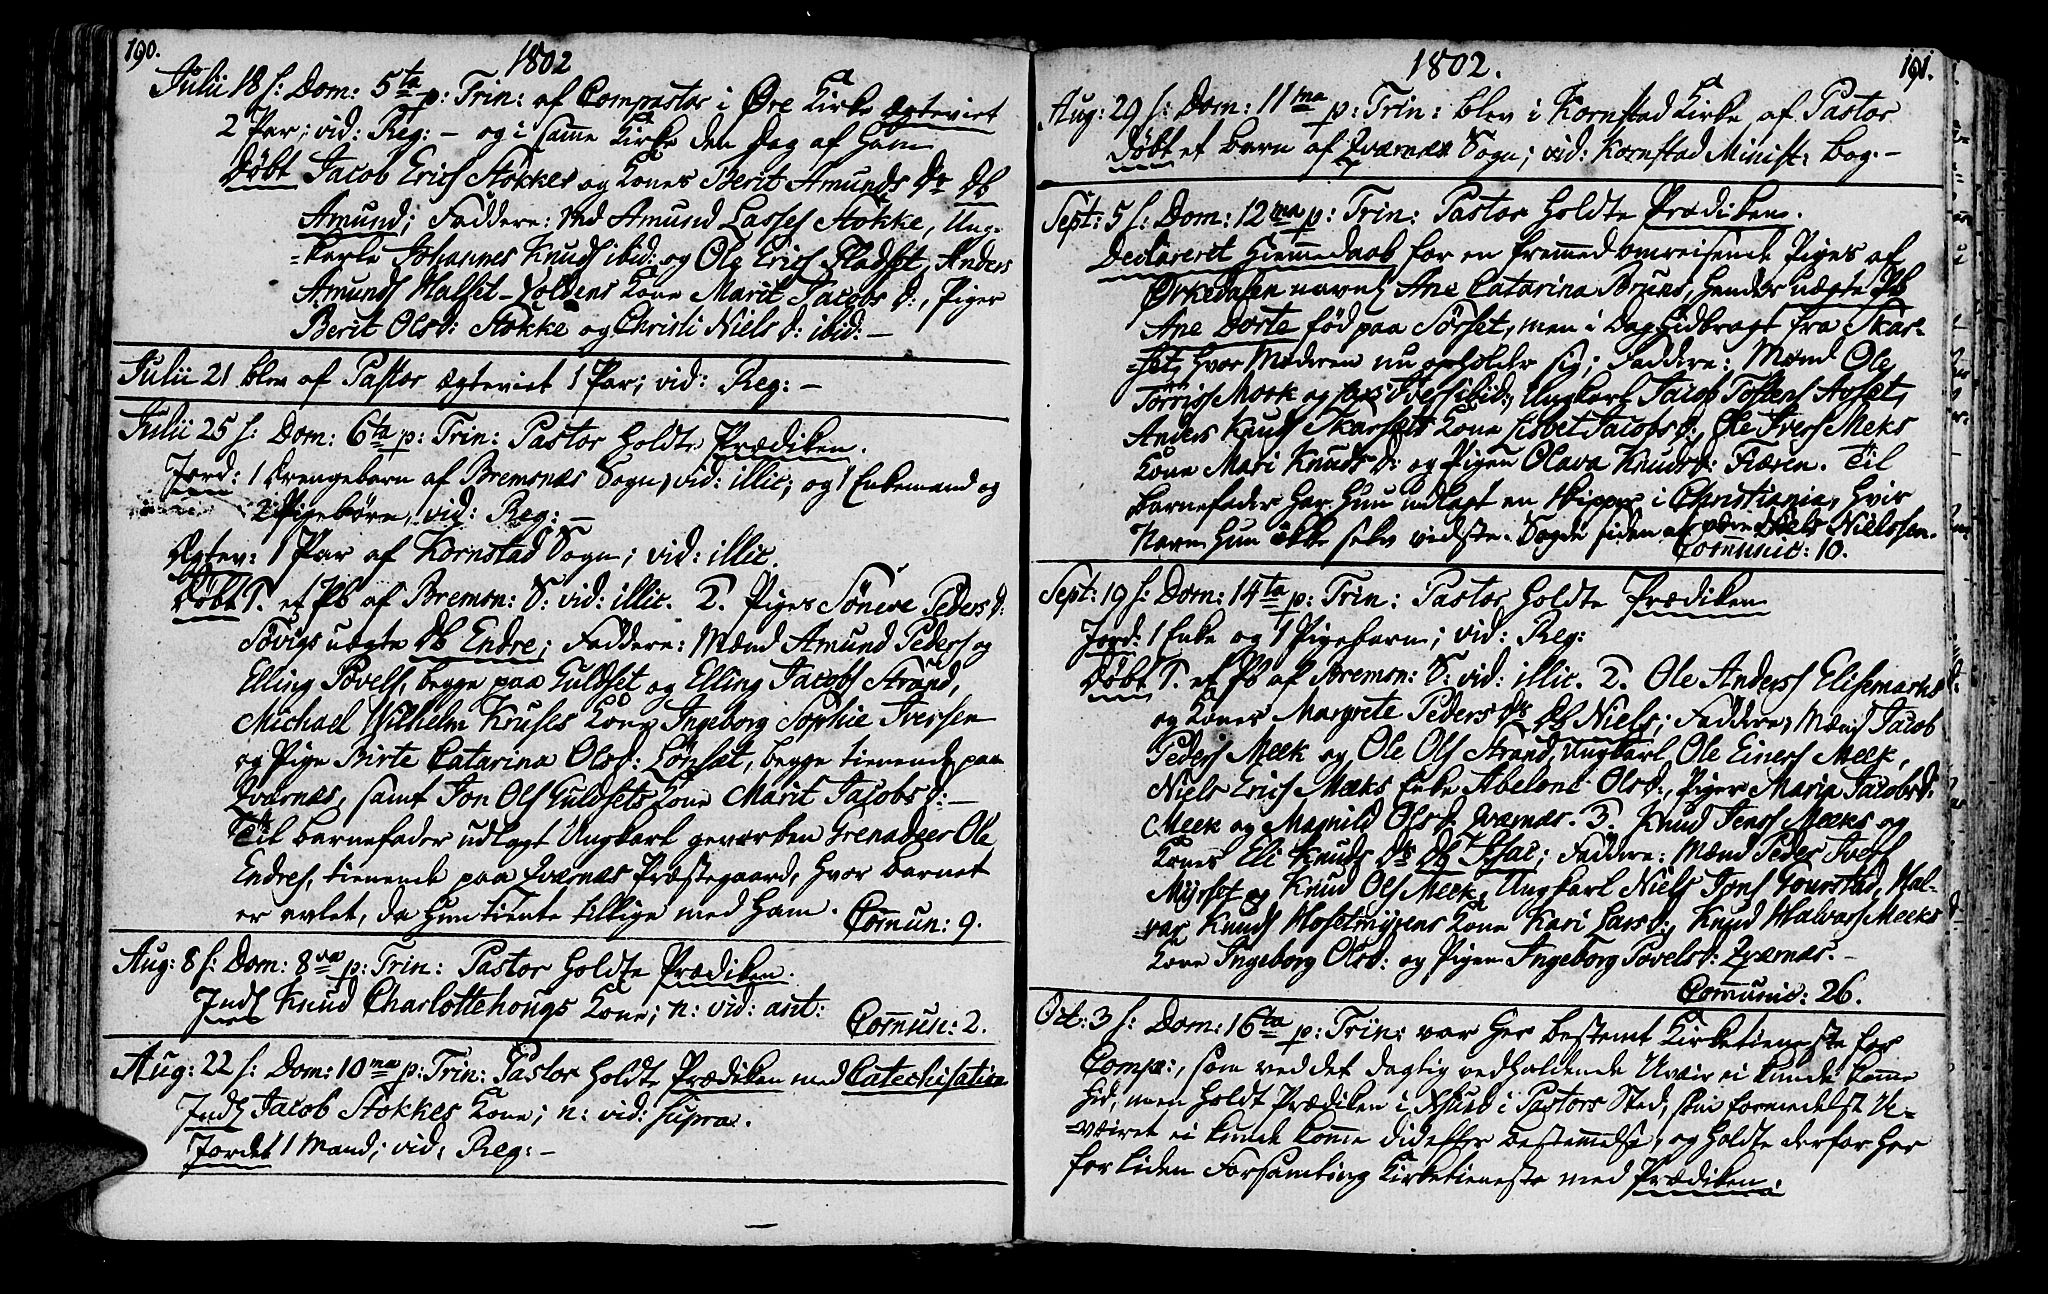 190.
1802
Julii 18 s: Dom: 5ta p: Trin: af Compastor i Øre Kirke ægteviet
2 Par; vid: Reg: - og i samme Kirke den Dag af Ham
Døbt Jacob Erichs Stokkes og Kones Berit Amunds Dr Db
Amund; Faddere: Md Amund Lasses Stokke, Ung-
=karle Johannes Knuds ibid: og Ole Erichs Fladset, Anders
Amunds Halset-Løkkens Kone Marit Jacobs d:, Piger
Berit Ols d: Stokke og Christi Niels d: ibid: -
Julii 21 blev af Pastor ægteviet 1 Par; vid: Reg: -
Julii 25 s: Dom: 6ta p: Trin: Pastor holdte Prædiken.
Jord: 1 Drengebarn af Bremsnæs Sogn, vid: illic; og 1 Enkemand og
2 Pigebørn, vid: Reg: -
Ægtev: 1 Par af Kornstad Sogn; vid: illic.
Døbt 1. et Pb af Bremsn: S: vid: illic. 2. Piges Søneve Peders d:
Søvigs uægte Db Endre; Faddere: Mænd Amund Peders og
Elling Povels, begge paa Guldset og Elling Jacobs Strand,
Michael Wilhelm Kruses Kone Ingeborg Sophie Iversen
og Pige Birte Catarina Olsd: Lønset, begge tienende paa
Qværnæs, samt Jon Ols Guldsets Kone Marit Jacobs d: -
Til Barnefader udlagt Ungkarl geværben Grenadeer Ole
Endres, tienende paa Qværnæs Præstegaard, hvor Barnet
er avlet, da hun tiente tillige med ham. Com̄un: 9.
Aug: 8 s: Dom: 8va p: Trin: Pastor holdte Prædiken.
Inds Knud Charlottehougs Kone; n: vid: ant:
Com̄un: 2.
Aug: 22 s: Dom: 10ma p: Trin: Pastor holdte Prædiken med Catechisation
Inds Jacob Stokkes Kone; n: vid: supra.
Jordet 1 Mand; vid: Reg: -
1802.
191.
Aug: 29 s: Dom: 11ma p: Trin: blev i Kornstad Kirke af Pastor
Døbt et Barn af Qværnæs Sogn; vid: Kornstad Minist: Bog. -
Sept: 5 s: Dom: 12ma p: Trin: Pastor holdte Prædiken.
Declareret Hiemmedaab for en fremmed omreisende Piges af
Ørkedalen navnl Ane Catarina Bruns, hendes uægte Pb
Ane Dorte fød paa Sørset, men i Dag hidbragt fra Skar-
=set, hvor Moderen nu opholder sig; Faddere: Mænd Ole
Törriss Mork og Ivers ibid:, Ungkarl Jacob Tostens Aaset,
Anders Knuds Skarsets Kone Lisbet Jacobs d:, Ole Ivers Meks
Kone Mari Knuds d: og Pigen Olava Knuds d: Fiæren. Til
Barnefader har hun udlagt en Skipper i Christiania, hvis
Navn hun ikke selv vidste. Sagde siden at være Niels Nielssen.
Com̄unic: 10.
Sept: 19 s: Dom: 14ta p: Trin: Pastor holdte Prædiken
Jord: 1 Enke og 1 Pigebarn; vid: Reg:
Døbt 1. et Pb af Bremsn: S: vid: illic. 2. Ole Anders Elisemarks
og Kones Margrete Peders Dr Db Niels; Faddere; Mænd Jacob
Peders Meek og Ole Ols Strand, Ungkarl Ole Einers Meek,
Niels Erichs Meeks Enke Abeloni Ols d:, Piger Maria Jacobs d:
Meek og Magnild Ols d. Qværnæs. 3. Knud Jenss Meeks og
Kones Eli Knuds Dr Db Isac; Faddere: Mænd Peder Ivers
Myrset og Knud Ols Meek, Ungkarl Niels Jons Gourstad, Hal-
=var Knuds Hosetmyrens Kone Kari Lars d:, Knud Halvars Meeks
Kone Ingeborg Ols d: og Pigen Ingeborg Povels d: Qværnæs. -
Com̄unic: 26.
Oct: 3 s: Dom: 16ta p: Trin: var her bestemt Kirketieneste for
Comp:, som ved det daglig vedholdende Uvæir ei kunde kom̄e
hid, men holdt Prædiken i Pastors Sted, som formedelst U-
=væiret ei kunde kom̄e did efter Bestem̄else, og holdte derfor her
for liden Forsamling Kirketieneste med Prædiken.